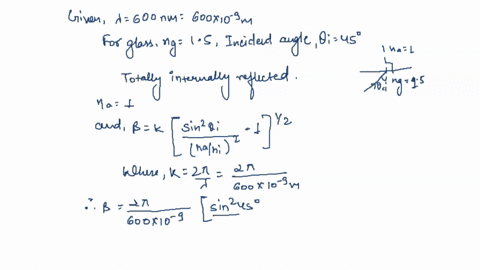 Given, λ = 600 nm = 600×10⁻⁹m
For glass, ng = 1.5, Incident angle, θi = 45°
Totally internally reflected.
1 na = 1
θi ng = 1.5
na = 1
and, β = k [ sin²θi / (na/ni)² - 1 ]^1/2
where, k = 2π/λ = 2π / 600×10⁻⁹m
∴ β = 2π / 600×10⁻⁹ [ sin²45°